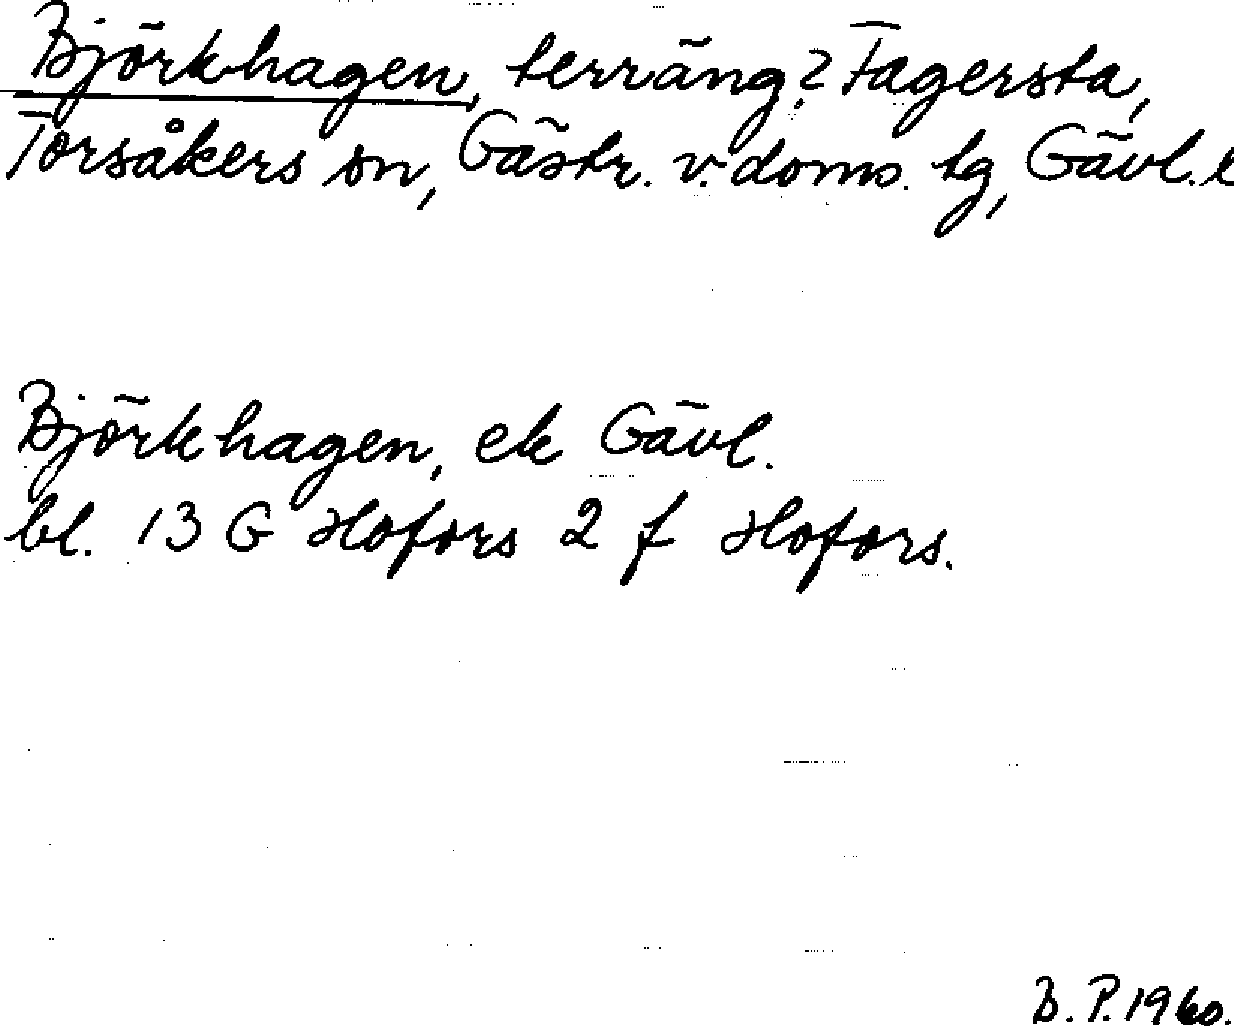 Björkhagen, terräng? Fagersta,
Torsåkers sn, Gästr. v. doms. tg, Gävl. l
Björkhagen, ek Gävl.
bl. 13 G Hofors 2 f Hofors.
B. P. 1960.